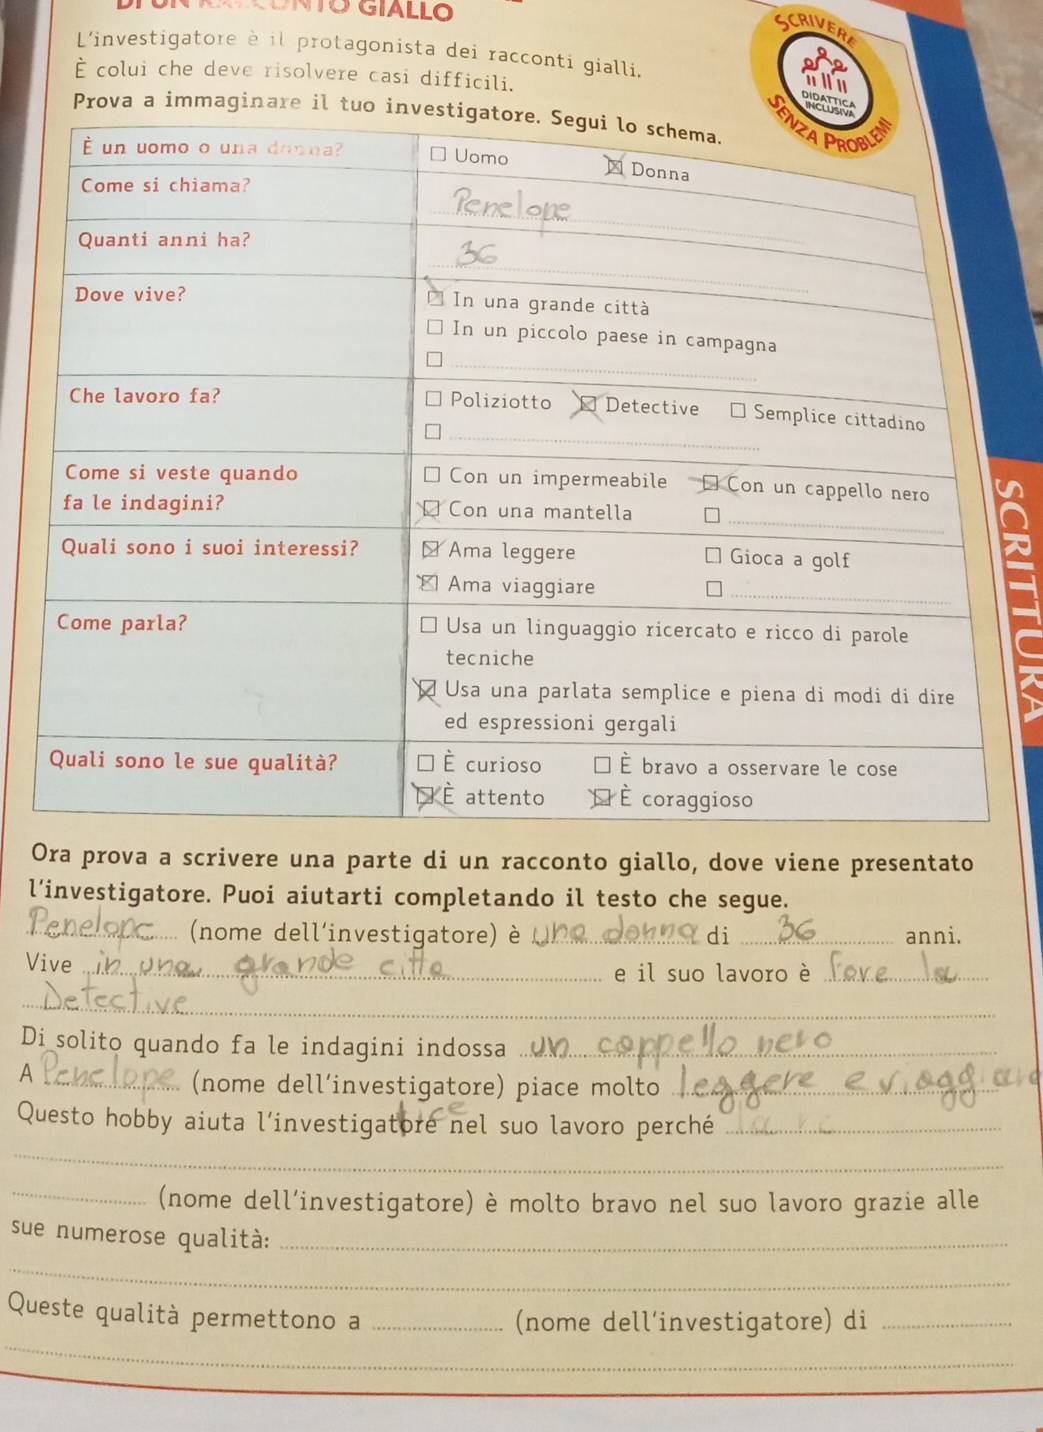 GIALLO
SCRIVERE
DIDATTICA
INCLUSIVA
SENZA PROBLEMI
L'investigatore è il protagonista dei racconti gialli.
È colui che deve risolvere casi difficili.
Prova a immaginare il tuo investigatore. Segui lo schema.
È un uomo o una donna? Uomo Donna
Come si chiama? Penelope
Quanti anni ha? 36
Dove vive? In una grande città
In un piccolo paese in campagna
Che lavoro fa? Poliziotto Detective Semplice cittadino
Come si veste quando
fa le indagini?
Con un impermeabile Con un cappello nero
Con una mantella
Quali sono i suoi interessi? Ama leggere Gioca a golf
Ama viaggiare
Come parla? Usa un linguaggio ricercato e ricco di parole
tecniche
Usa una parlata semplice e piena di modi di dire
ed espressioni gergali
Quali sono le sue qualità? È curioso È bravo a osservare le cose
È attento È coraggioso
SCRITTURA
Ora prova a scrivere una parte di un racconto giallo, dove viene presentato
l'investigatore. Puoi aiutarti completando il testo che segue.
Penelope (nome dell'investigatore) è una donna di 36 anni.
Vive in una grande citta e il suo lavoro è fare la
Detective
Di solito quando fa le indagini indossa un cappello nero
A Penelope (nome dell'investigatore) piace molto leggere e viaggiare
Questo hobby aiuta l'investigatore nel suo lavoro perché
(nome dell'investigatore) è molto bravo nel suo lavoro grazie alle
sue numerose qualità:
Queste qualità permettono a (nome dell'investigatore) di